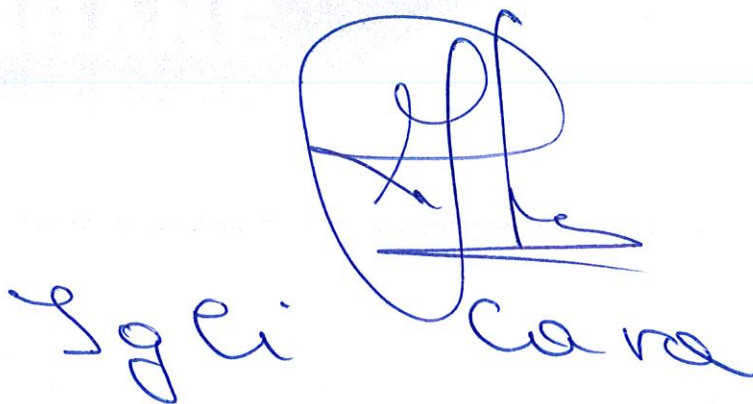 Igli Cara